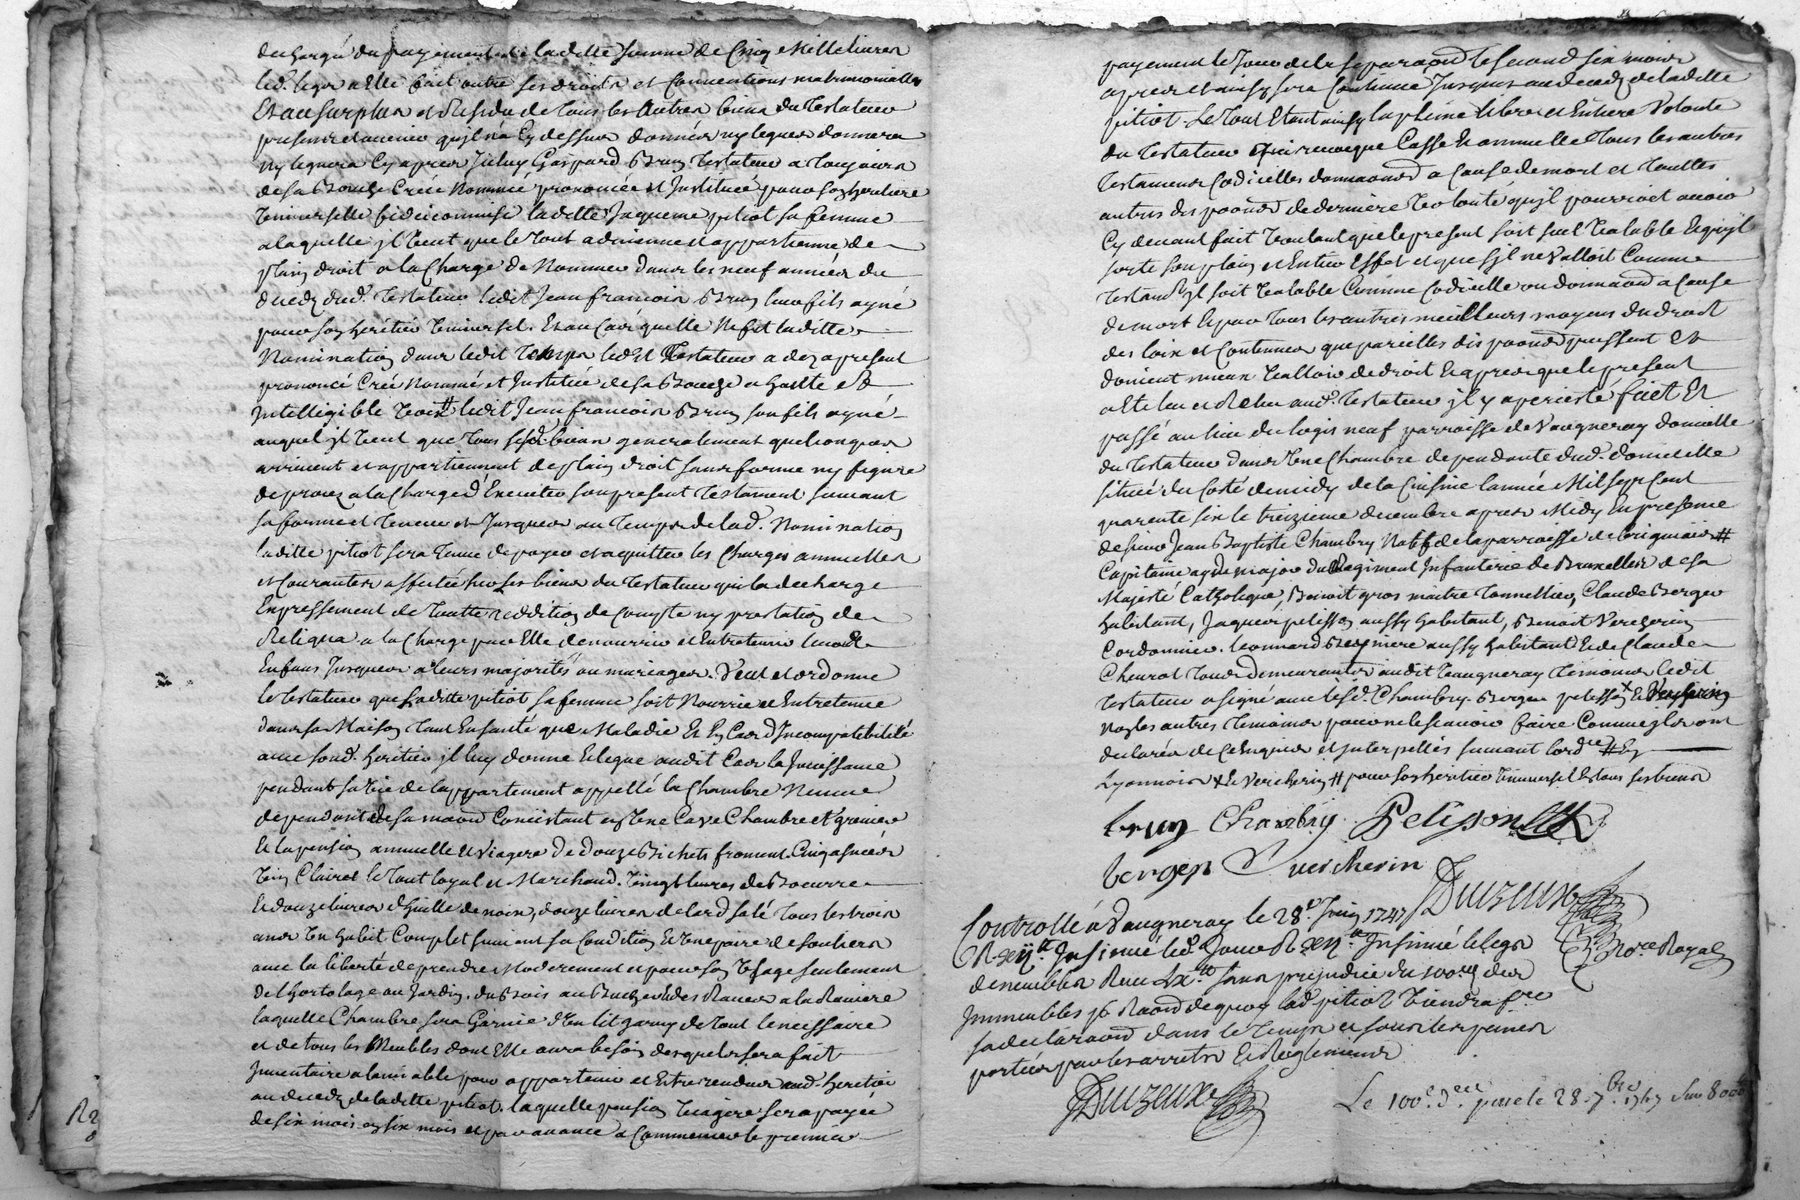 dechargé du payement de la ditte somme de Cinq Mille livres
led. legs a Elle fait outre ses droits et Conventions matrimonialles
Et au surplus et Residu de Tous les Autres biens du Testateur
presens et avenir qu'il n'a Cy dessus donnés ny legués donnera
ny leguera Cy apres Iceluy Gaspard Brun Testateur a Toujours
de sa Bouche Créé Nommé prononcée et Instituée pour son heritiere
Universelle fideicommise ladite Jaqueme pitiot sa femme
a laquelle jl Veut que le Tout advienne et appartienne de
plain droit a la Charge de Nommer dans les neuf années du
deceds dud. Testateur ledit Jean francois Brun leur fils ayné
pour son heritier Universel. Et au Cas quelle Ne fit laditte
Nomination dans ledit Temps ledit Testateur a dez a present
prononcé Créé Nommé et Institué de sa Bouche a haute et
Intelligible Voix # ledit Jean francois Brun son fils ayné
auquel jl Veut que Tous sesd. biens generalement quelconques
arrivent et appartiennent de plain droit sans forme ny figure
de procez a la Charge d'Executer son present Testament suivant
sa forme et Teneur et Jusques au Temps de lad. Nomination
laditte pitiot sera Tenue de payer et acquitter les Charges annuelles
et Courantes affectées sur les biens du Testateur qui la decharge
Expressement de Toutte reddition de Compte ny prestation de
Reliqua a la Charge par Elle de nourrir et Entretenir leurs
Enfans Jusques a leurs majorités ou mariages. Veut et ordonne
le Testateur que laditte pitiot sa femme soit Nourrie et Entretenue
dans sa Maison Tant En santé que Maladie Et En Cas d'Incompatibilité
avec sond. heritier jl luy donne Et legue audit Cas la Jouissance
pendant sa Vie de l'appartement appellé la Chambre Neuve
dependant de sa maison Consistant en Une Cave Chambre et Grenier
Et la pension annuelle et Viagere De douze Bichets froment Cinq asnées
Vin Clairet le Tout loyal et Marchand. Vingt livres de Boeurre
Et douze livres d'huille de noix, douze livres de lard salé Tous les trois
ans Un habit Complet suivant sa Condition Et Une paire de souliers
avec la liberté de prendre Moderement et pour son Usage seulement
De l'hortolage au Jardin, du Bois au Bucher Et des Raves a la Raviere
laquelle Chambre sera Garnie d'Un lit garny de Tout le necessaire
et de tous les Meubles dont Elle aura besoin desquels sera fait
Inventaire a lamiable pour appartenir et Estre rendus aud. heritier
au deceds de laditte pitiot. laquelle pension Viagere sera payée
de six mois en six mois et par avance a Commencer le premier
payement le Jour de la separation le second six mois
apres et ainsy sera Continué Jusques au deceds de ladite
pitiot. Le Tout Etant ainsy la pleine libre et Entiere Volonté
du Testateur qui revoque Casse Et annulle Tous les autres
Testamens Codicilles donnaons a Cause de mort et Touttes
autres disposons de derniere Volonté qu'jl pourroit avoir
Cy devant fait Voulant que le present soit seul Valable Et qu'jl
sorte son plain et Entier Effet et que s'jl ne Valloit Comme
Testamt. jl soit Valable Comme Codicille ou donnaon a Cause
de mort Et par Tous les autres meilleurs moyens du droit
des loix et Coutumes que pareilles disposons puissent Et
doivent mieux Valloir de droit Et apres que le present
a Eté leu et Releu aud. Testateur jl y a persisté fait Et
passé au lieu du logis neuf parroisse de Vaugneray domicille
du Testateur dans Une Chambre dependante dud. domicille
située du Costé de midy de la Cuisine l'année Mil sept Cent
quarente six le treizieme decembre apres Midy En presence
de sieur Jean Baptiste Chambry Natif de la parroisse de brignais #
Capitaine ayde major du Regiment Infanterie de Bruxelles de sa
Majesté Catholique, Benoit gros maitre Tonnellier, Claude Berger
habitant, Jaques pelisson aussy habitant, Benoit Vercherin
Cordonnier. leonnard Bruyere aussy habitant Et de Claude
Cheurot Tous demeurants audit Vaugneray Temoins ledit
Testateur a signé avec lesd. Chambry. Berger pelisson x Et Vercherin
Non les autres Temoins pour ne le scavoir faire Comme jls ont
declarés de Ce Enquis et Interpellés suivant lordce. # En
Lyonnois x Le Vercherin # pour son heritier Universel Et tous ses biens
brun Chambry Pelisson
berger Vercherin
Duizeux
Controllé à Vaugneray le 28e. Juin 1747
No.re Royal
R xijtt. Insinué led. Jour R xijtt. Insinué le legs
de meubles Reçu Lxtt. sans prejudice du 100e. des
Immeubles Raison de quoy lad. pitiot Viendra f.re
sa declaraon dans le Temps et sous les peines
portées par les arrets Et Reglemens
Duizeux
Le 100e. d.er payé le 28 7bre 1747 sur 8000tt